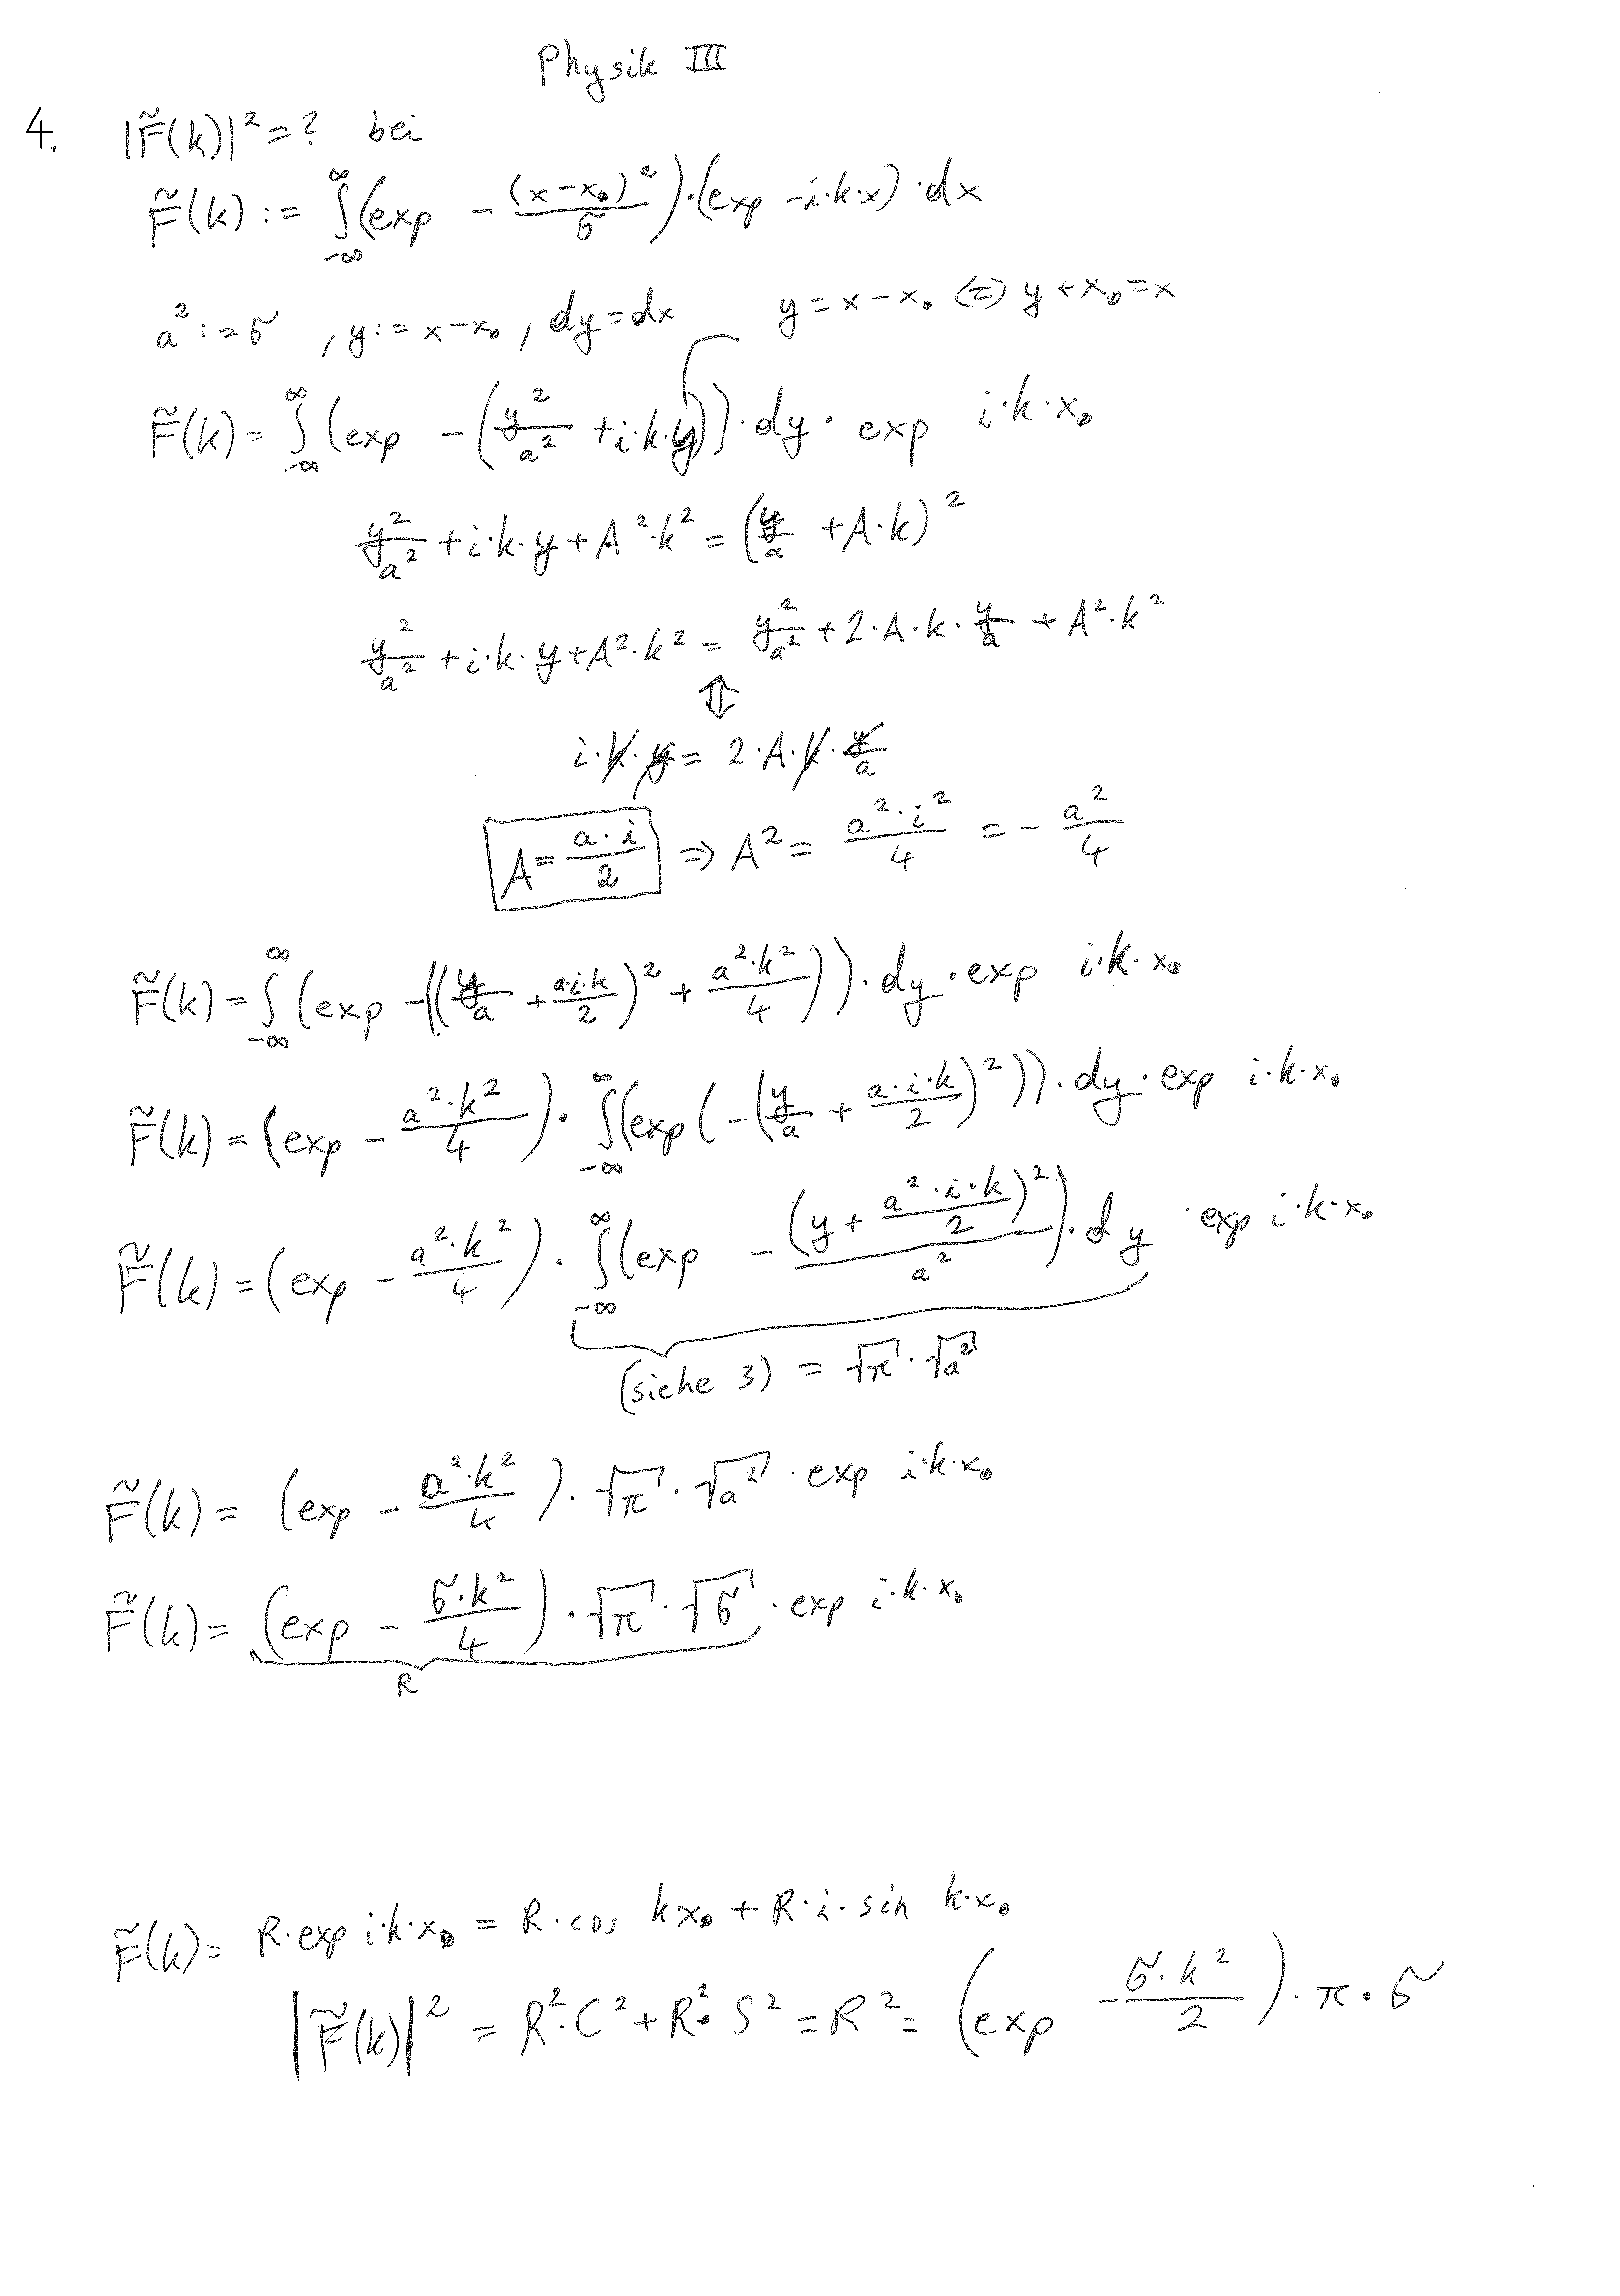 Physik III
4. |F̃(k)|² = ? bei
F̃(k) := ∫_{-∞}^{∞} (exp - (x-x₀)²/σ)·(exp -i·k·x)·dx
a² := σ , y := x-x₀ , dy = dx y = x-x₀ (=) y + x₀ = x
F̃(k) = ∫_{-∞}^{∞} (exp - (y²/a² + i·k·y))·dy · exp i·k·x₀
y²/a² + i·k·y + A²·k² = (y/a + A·k)²
y²/a² + i·k·y + A²·k² = y²/a² + 2·A·k·y/a + A²·k²
⇕
i·k·y = 2·A·k·y/a
A = a·i/2 ⇒ A² = a²·i²/4 = - a²/4
F̃(k) = ∫_{-∞}^{∞} (exp -((y/a + a·i·k/2)² + a²·k²/4))·dy · exp i·k·x₀
F̃(k) = (exp - a²·k²/4) · ∫_{-∞}^{∞} (exp (-(y/a + a·i·k/2)²))·dy · exp i·k·x₀
F̃(k) = (exp - a²·k²/4) · ∫_{-∞}^{∞} (exp - (y + a²·i·k/2)²/a²)·dy · exp i·k·x₀
(siehe 3) = √π · √a²
F̃(k) = (exp - a²·k²/4) · √π · √a² · exp i·k·x₀
F̃(k) = (exp - σ·k²/4) · √π · √σ · exp i·k·x₀
R
F̃(k) = R·exp i·k·x₀ = R·cos kx₀ + R·i·sin k·x₀
|F̃(k)|² = R²·C² + R²·S² = R² = (exp -σ·k²/2)·π·σ